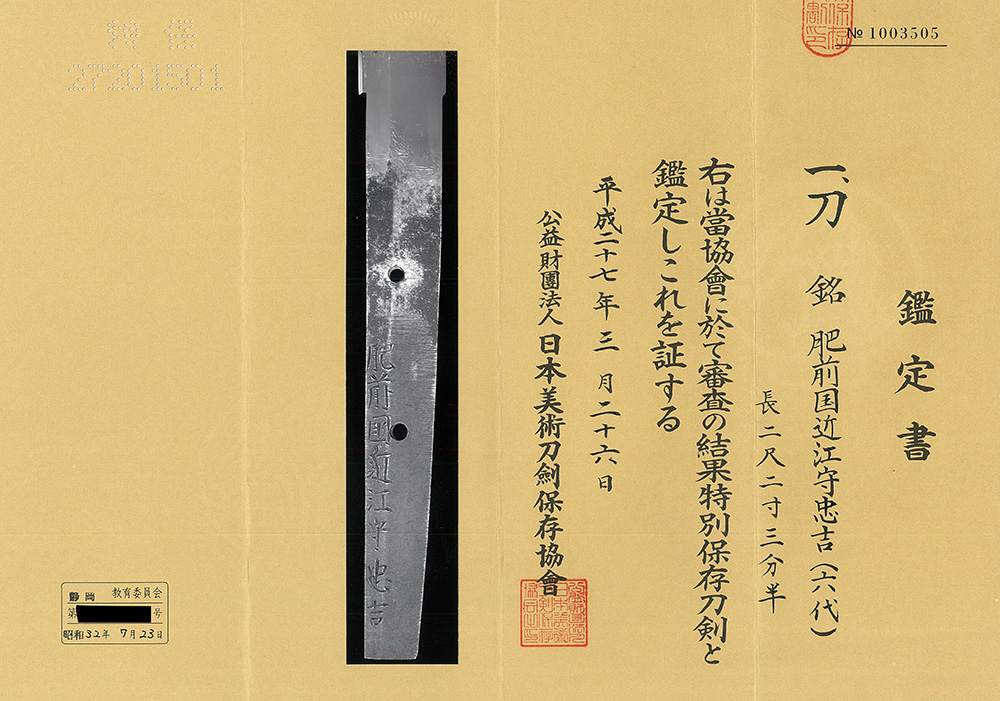 № 1003505
鑑定書
一、刀 銘 肥前国近江守忠吉(六代)
長二尺二寸三分半
右は當協會に於て審査の結果特別保存刀剣と
鑑定しこれを証する
平成二十七年三月二十六日
公益財團法人 日本美術刀劍保存協會
肥前国近江守忠吉
27201501
静岡 教育委員会
第 号
昭和32年 7月23日